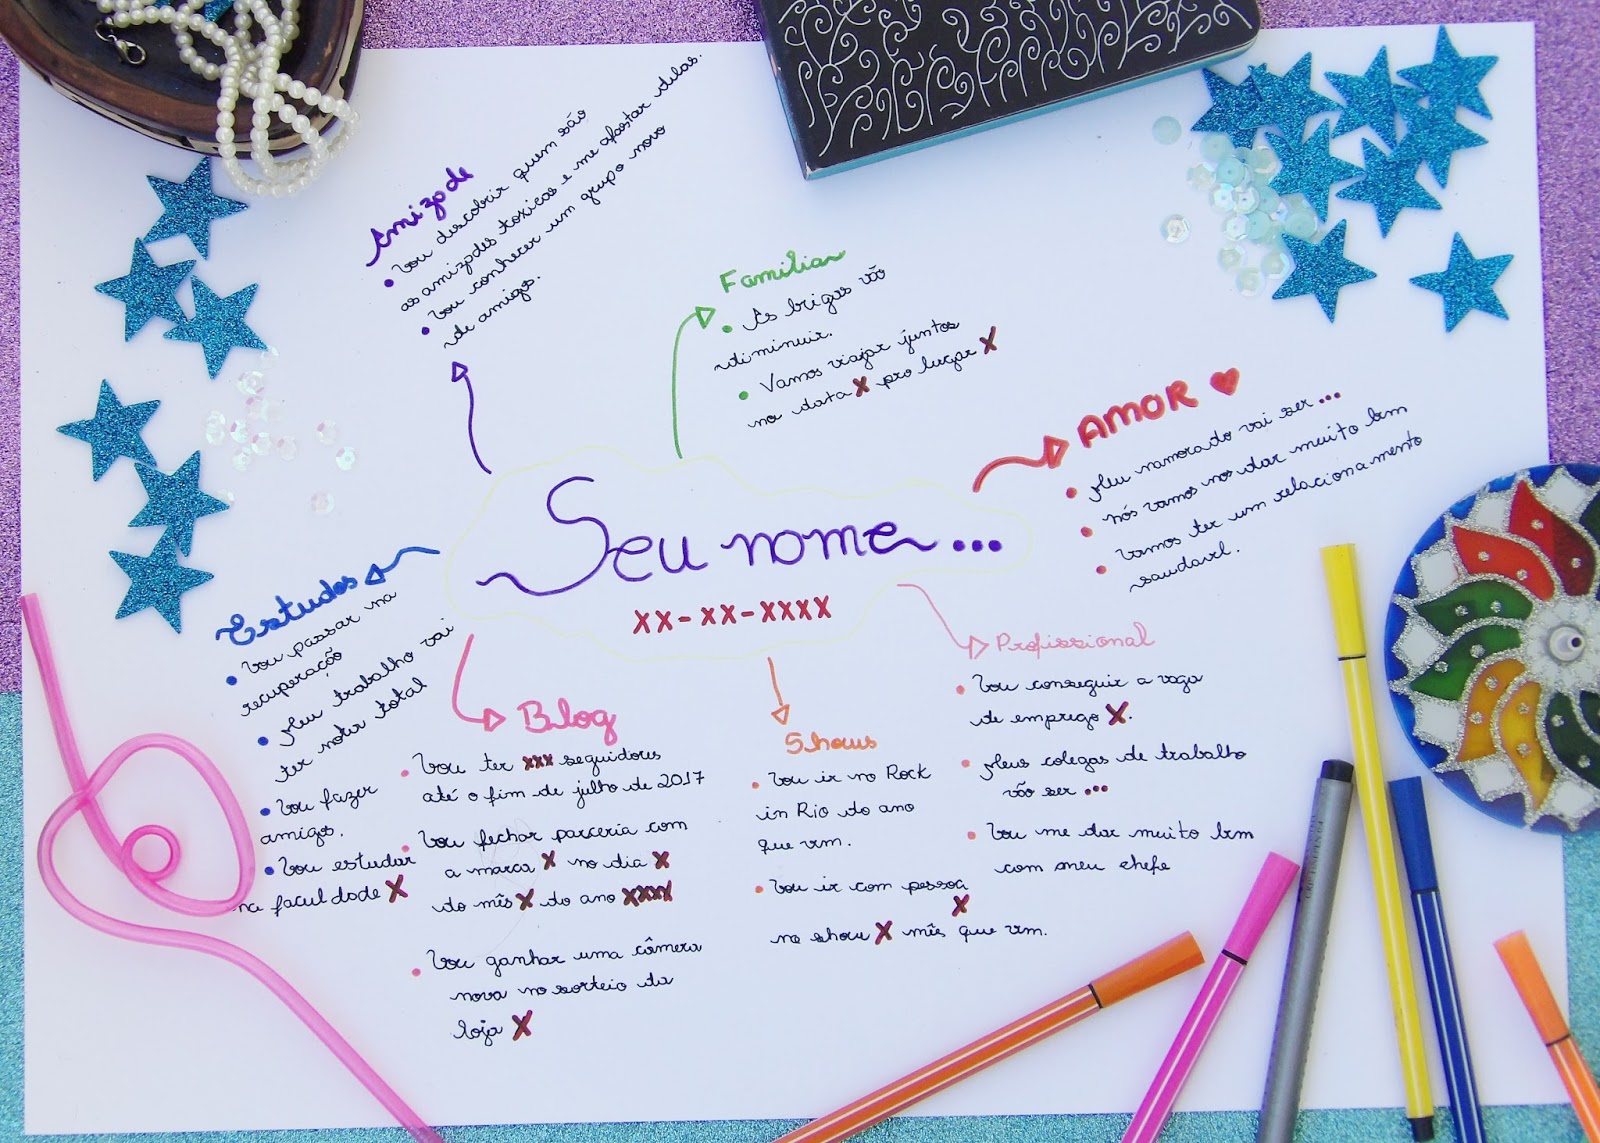 Amizade
• Vou descobrir quem são
as amizades toxicas e me afastar delas.
• Vou conhecer um grupo novo
de amigos.
Familiar
• As brigas vão
diminuir.
• Vamos viajar juntos
na data X pro lugar X
AMOR ♥
• Meu namorado vai ser ...
• nós vamos nos dar muito bem
• Vamos ter um relacionamento
saudavel.
Seu nome...
XX-XX-XXXX
Estudos
• Vou passar na
recuperação
• Meu trabalho vai
ter nota total
• Vou fazer
amigos.
• Vou estudar
na faculdade X
Blog
• Vou ter xxx seguidores
até o fim de julho de 2017
• Vou fechar parceria com
a marca X no dia X
do mês X do ano XXXX
• Vou ganhar uma câmera
nova no sorteio da
loja X
Shows
• Vou ir no Rock
in Rio do ano
que vem.
• Vou ir com pessoa
X
no show X mês que vem.
Profissional
• Vou conseguir a vaga
de emprego X.
• Meus colegas de trabalho
vão ser ...
• Vou me dar muito bem
com meu chefe